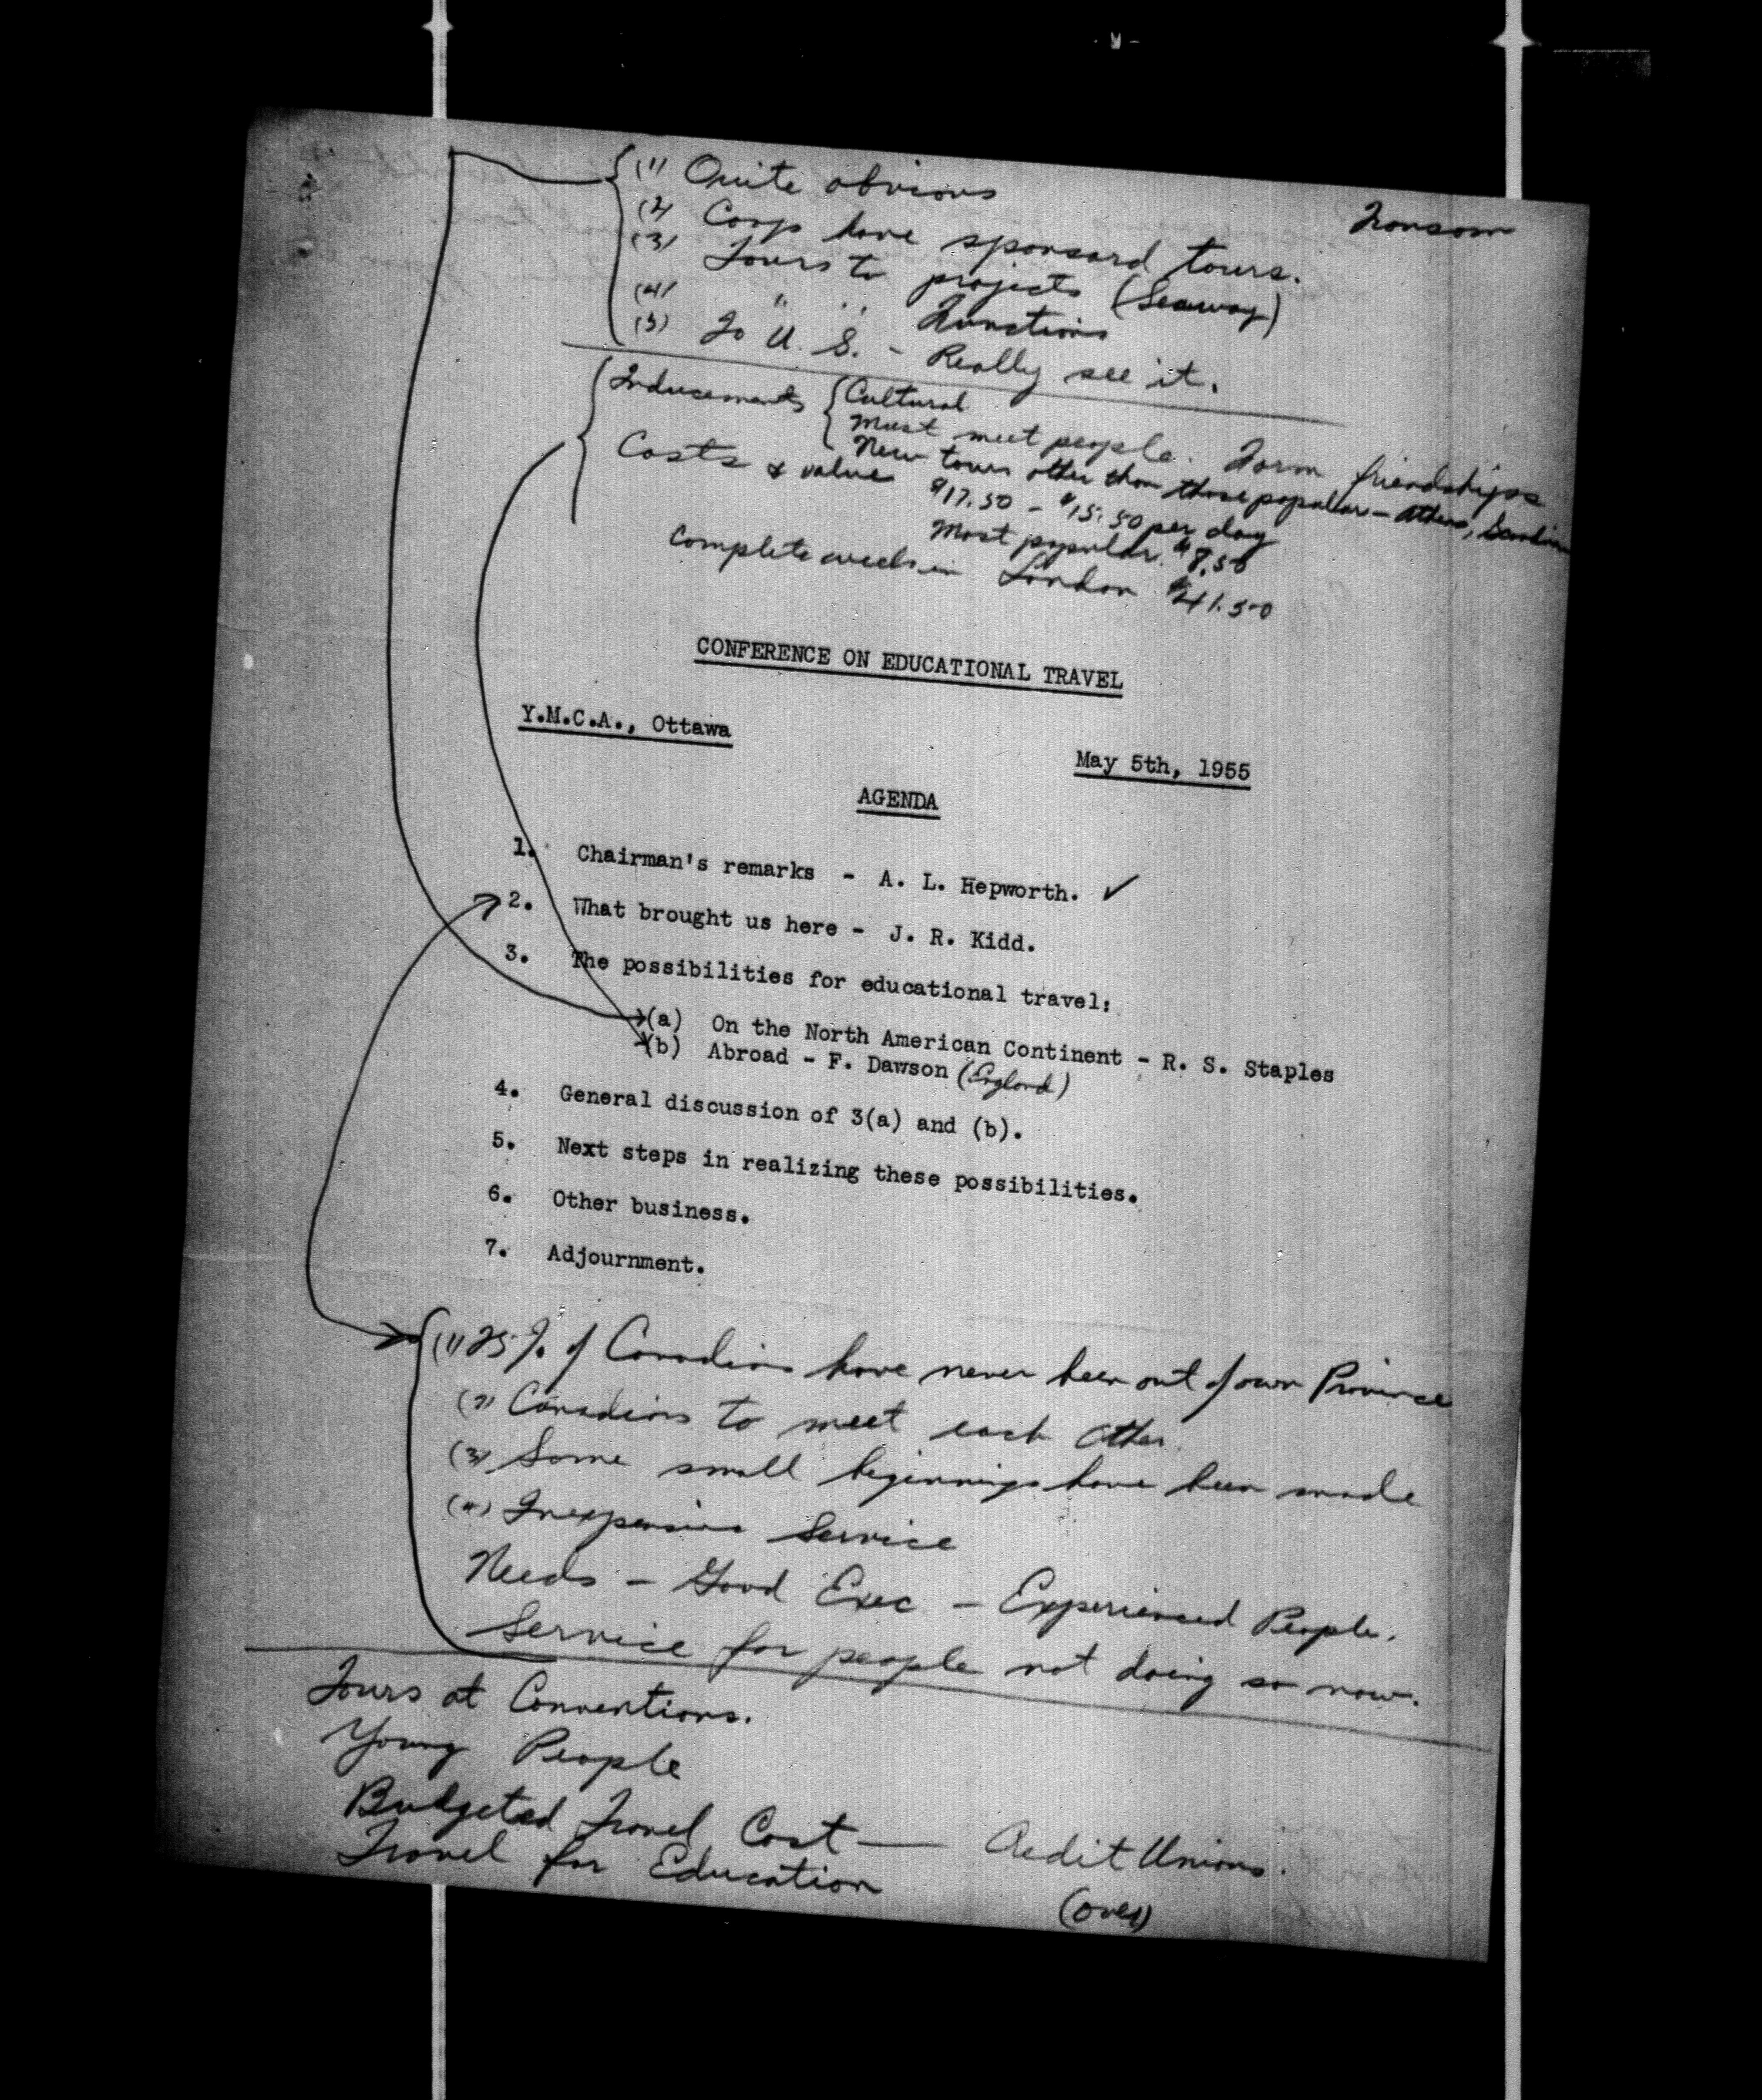 (1) Quite obvious
(2) Coops have sponsord tours.
(3) Tours to projects (Seaway)
(4) " " Functions
(5) To U. S. - Really see it.
Inducements { Cultural
Must meet people. Form friendships
New tours other than those popular - Athens,
Costs & value $17.50 - $15.50 per day
Most popular $8.50
Complete week in London $41.50
CONFERENCE ON EDUCATIONAL TRAVEL
Y.M.C.A., Ottawa
May 5th, 1955
AGENDA
1. Chairman's remarks - A. L. Hepworth. ✓
2. What brought us here - J. R. Kidd.
3. The possibilities for educational travel:
(a) On the North American Continent - R. S. Staples
(b) Abroad - F. Dawson (England)
4. General discussion of 3(a) and (b).
5. Next steps in realizing these possibilities.
6. Other business.
7. Adjournment.
(1) 25% of Canadians have never been out of own Province
(2) Canadians to meet each other.
(3) Some small beginnings have been made
(4) Inexpensive Service
Needs - Good Exec - Experienced People.
Service for people not doing so now.
Tours at Conventions.
Young People
Budgeted Travel Cost — Credit Unions.
Travel for Education
(over)